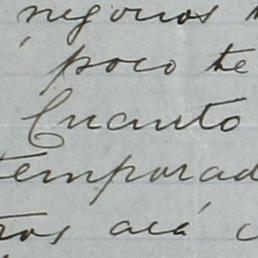 negocios
poco te
Cuanto
temporad
tros acá